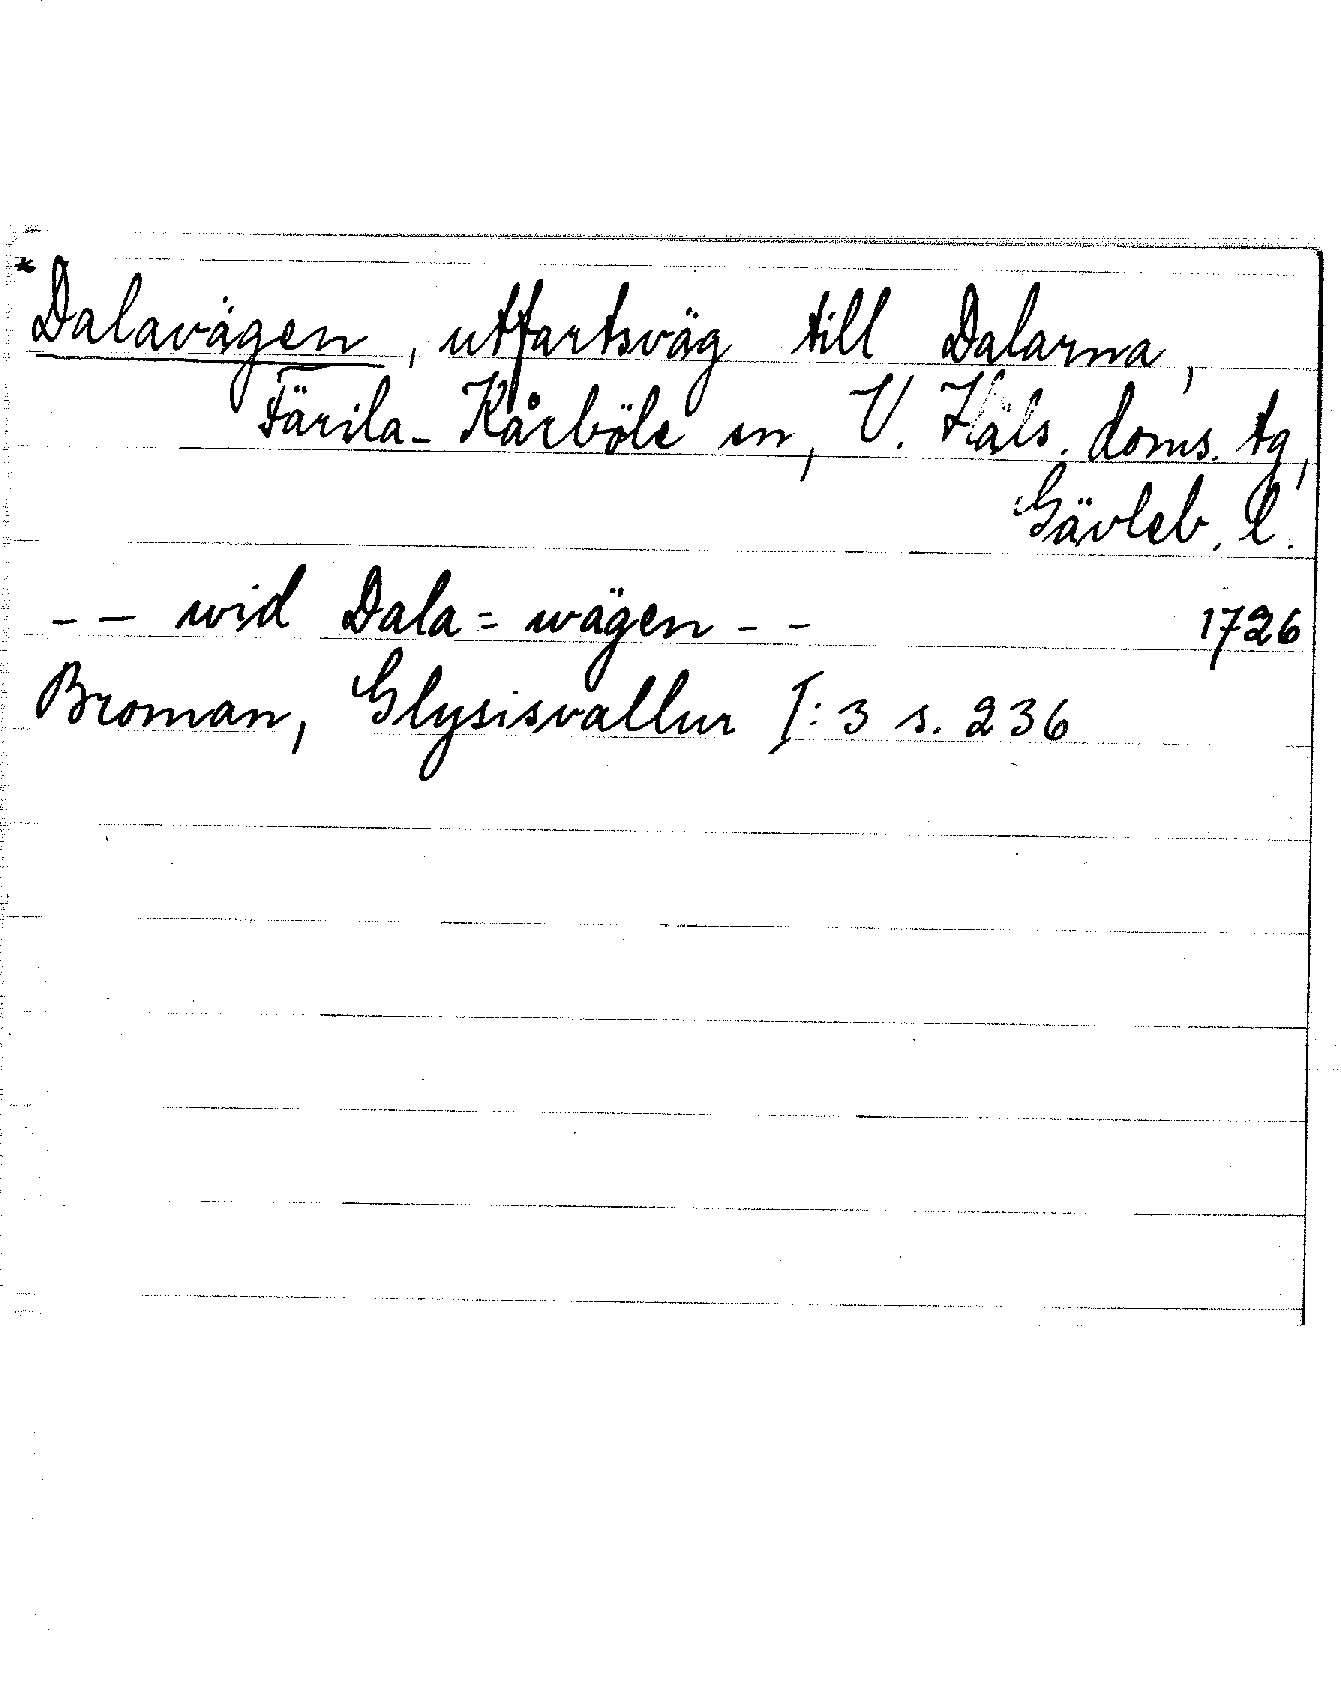 *Dalavägen, utfartsväg till Dalarna,
Färila-Kårböle sn, V. Häls. doms. tg,
Gävleb. l.
-- wid Dala=wägen -- 1726
Broman, Glysisvallur I:3 s. 236